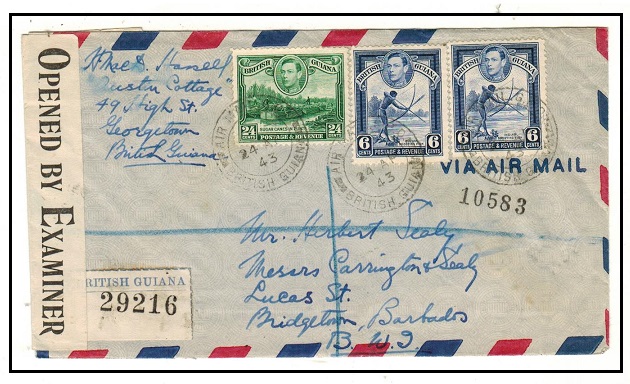 OPENED BY EXAMINER
Austin Cottage"
49 High St.
Georgetown
British Guiana
BRITISH GUIANA
24 CENTS 24 CENTS
SUGAR CANES IN
POSTAGE & REVENUE
BRITISH GUIANA
6 CENTS 6 CENTS
POSTAGE & REVENUE
BRITISH GUIANA
6 CENTS 6 CENTS
POSTAGE & REVENUE
AIR
24
43
BRITISH GUIANA
AIR
24 A
43
BRITISH GUIANA
VIA AIR MAIL
10583
Mr. Herbert Sealy
Messrs Carrington & Sealy
Lucas St.
Bridgetown, Barbados
B. W. I
RITISH GUIANA
29216